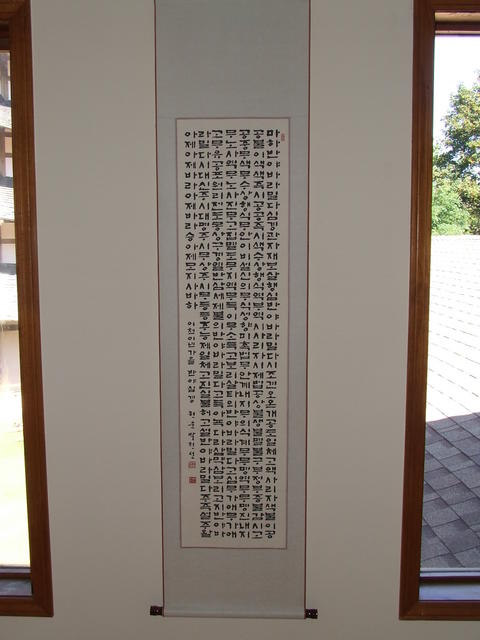 마하반야바라밀다심경관자재보살행심반야바라밀다시조견오온개공도일체고액사리자색불이공
공불이색색즉시공공즉시색수상행식역부여시사리자시제법공상불생불멸불구부정부증불감시고
공중무색무수상행식무안이비설신의무색성향미촉법무안계내지무의식계무무명역무무명진내지
무노사역무노사진무고집멸도무지역무득이무소득고보리살타의반야바라밀다고심무가애무가애
고무유공포원리전도몽상구경열반삼세제불의반야바라밀다고득아뇩다라삼먁삼보리고지반야바
라밀다시대신주시대명주시무상주시무등등주능제일체고진실불허고설반야바라밀다주즉설주왈
아제아제바라아제바라승아제모지사바하 이천이년가을 반야심경